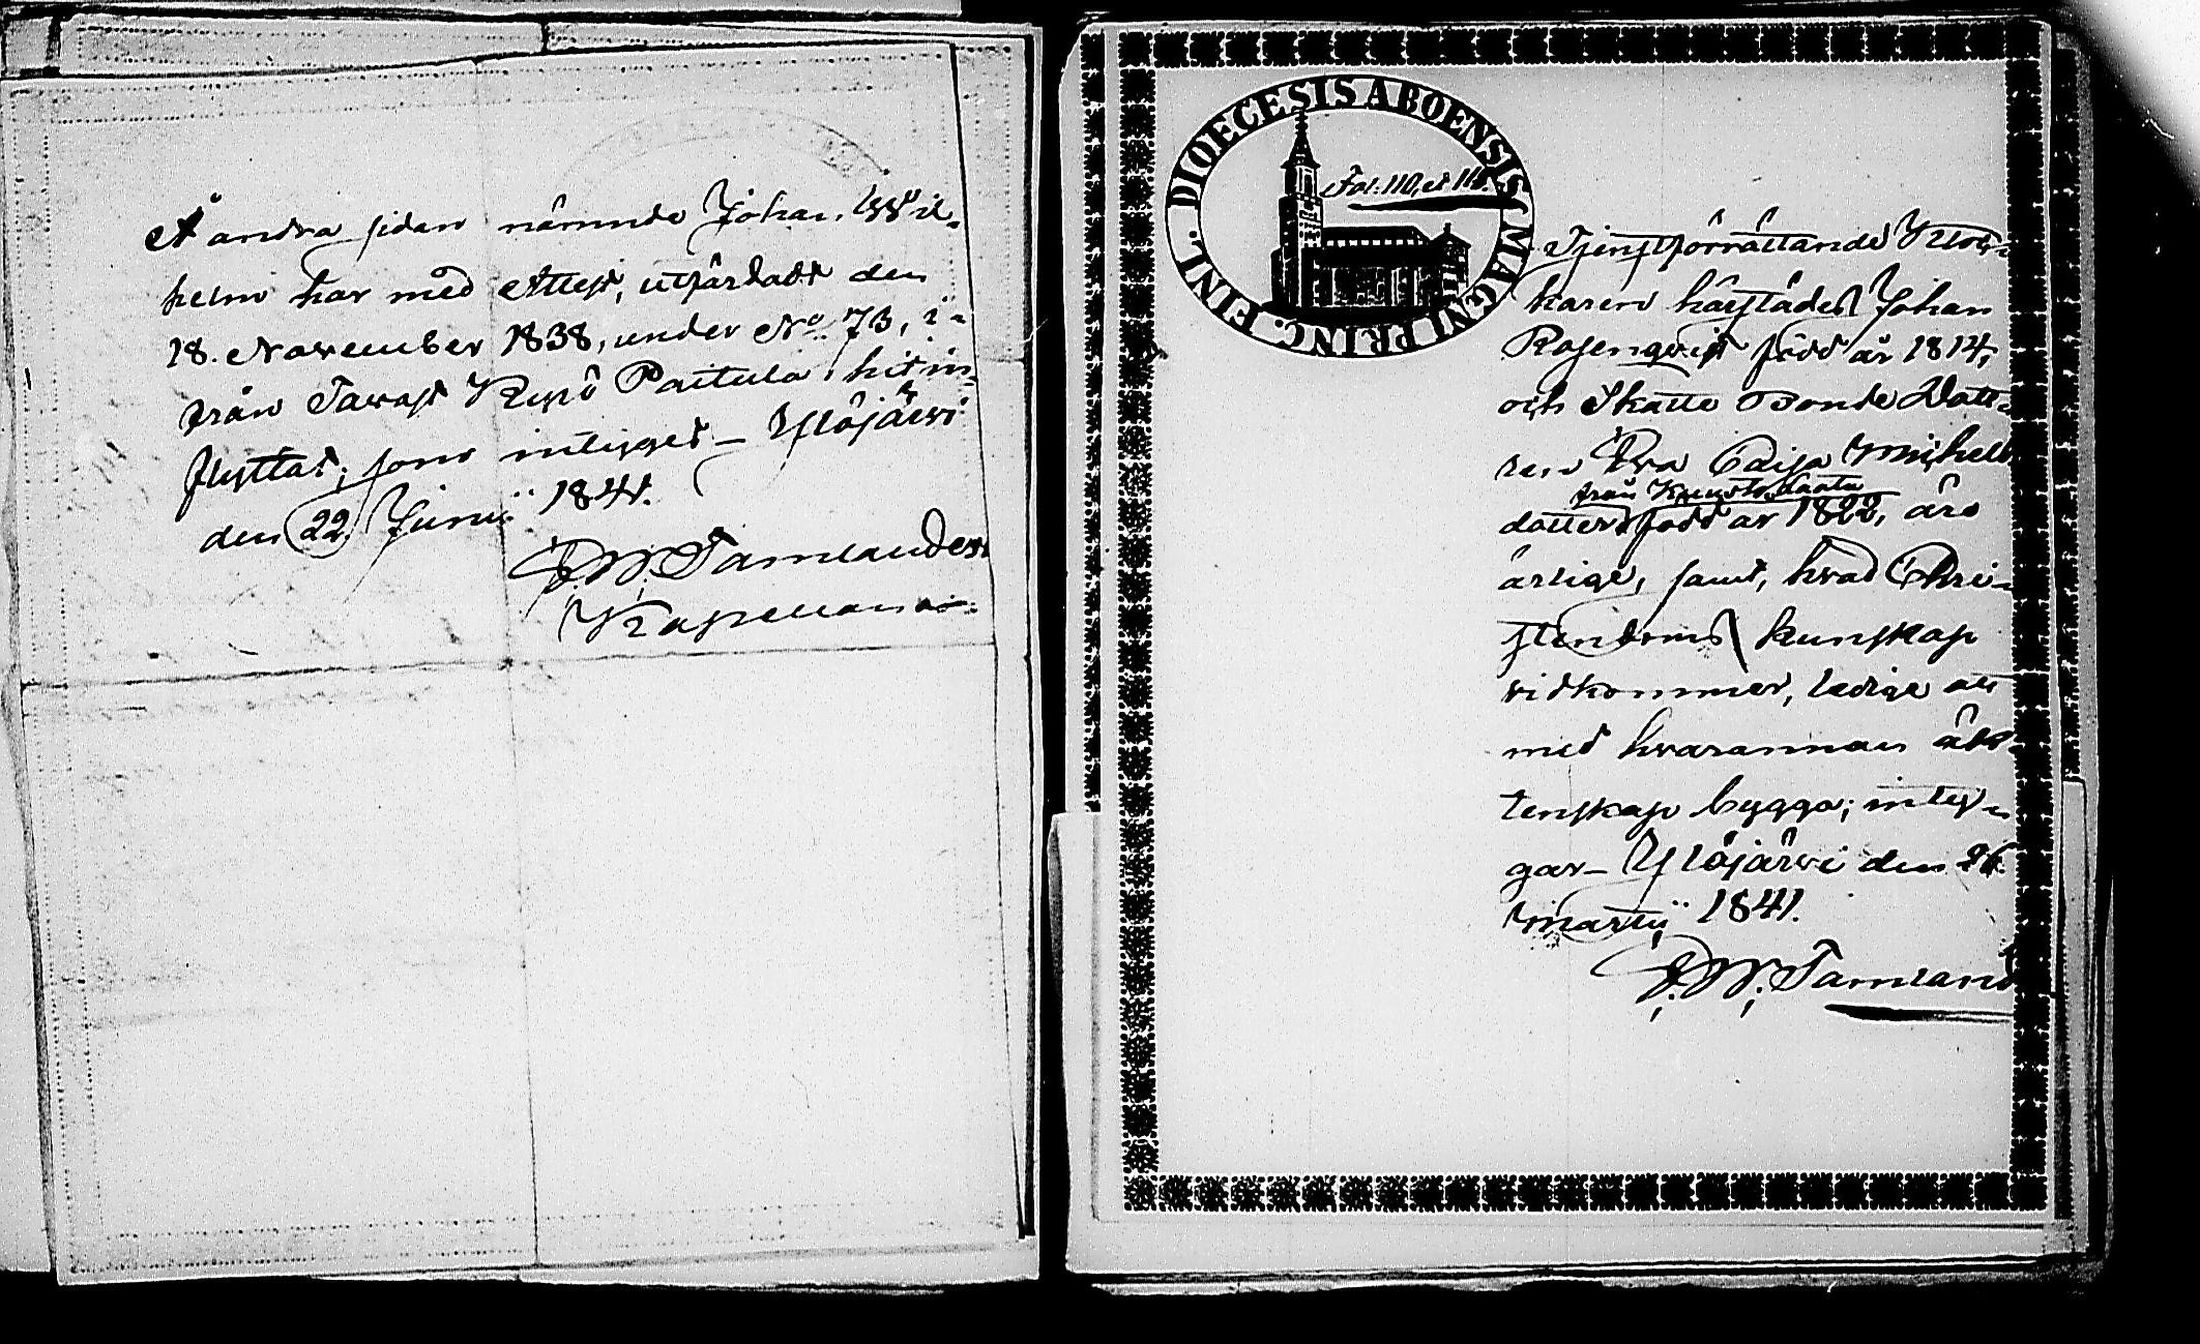 Å andra sidan nämnde Johan Wil-
helm har med Attest, utfärdadt den
18. November 1838, under No. 73, i-
från Tavast Kyrö Paitula, hit in-
flyttat; som intygges_ Ylöjärvi
den 22. Junii 1841.
E. W. Tamlander
Kapellan
DIOECESIS ABOENSIS MAGNI PRINC. FINL.
Fol: 110, et 118.
Tjenstförrättande Kloc-
karen härstädes Johan
Rosenqvist född år 1814,
och Skatte Bonde Dott-
ren Eva Caisa Michels
från
dotter, född år 1822, äro
ärlige, samt, hvad Chri-
stendoms kunskap
vidkommer, ledige att
med hvarannan äk-
tenskap bygga; inty-
gar_ Ylöjärvi den 26.
Martii 1841.
E. W. Tamland